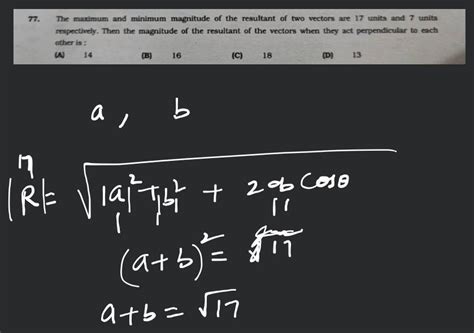 77. The maximum and minimum magnitude of the resultant of two vectors are 17 units and 7 units
respectively. Then the magnitude of the resultant of the vectors when they act perpendicular to each
other is :
(A) 14 (B) 16 (C) 18 (D) 13
a , b
17
|R| = √|a|² + |b|² + 2ab Cosθ
(a+b)² = 17
a+b = √17